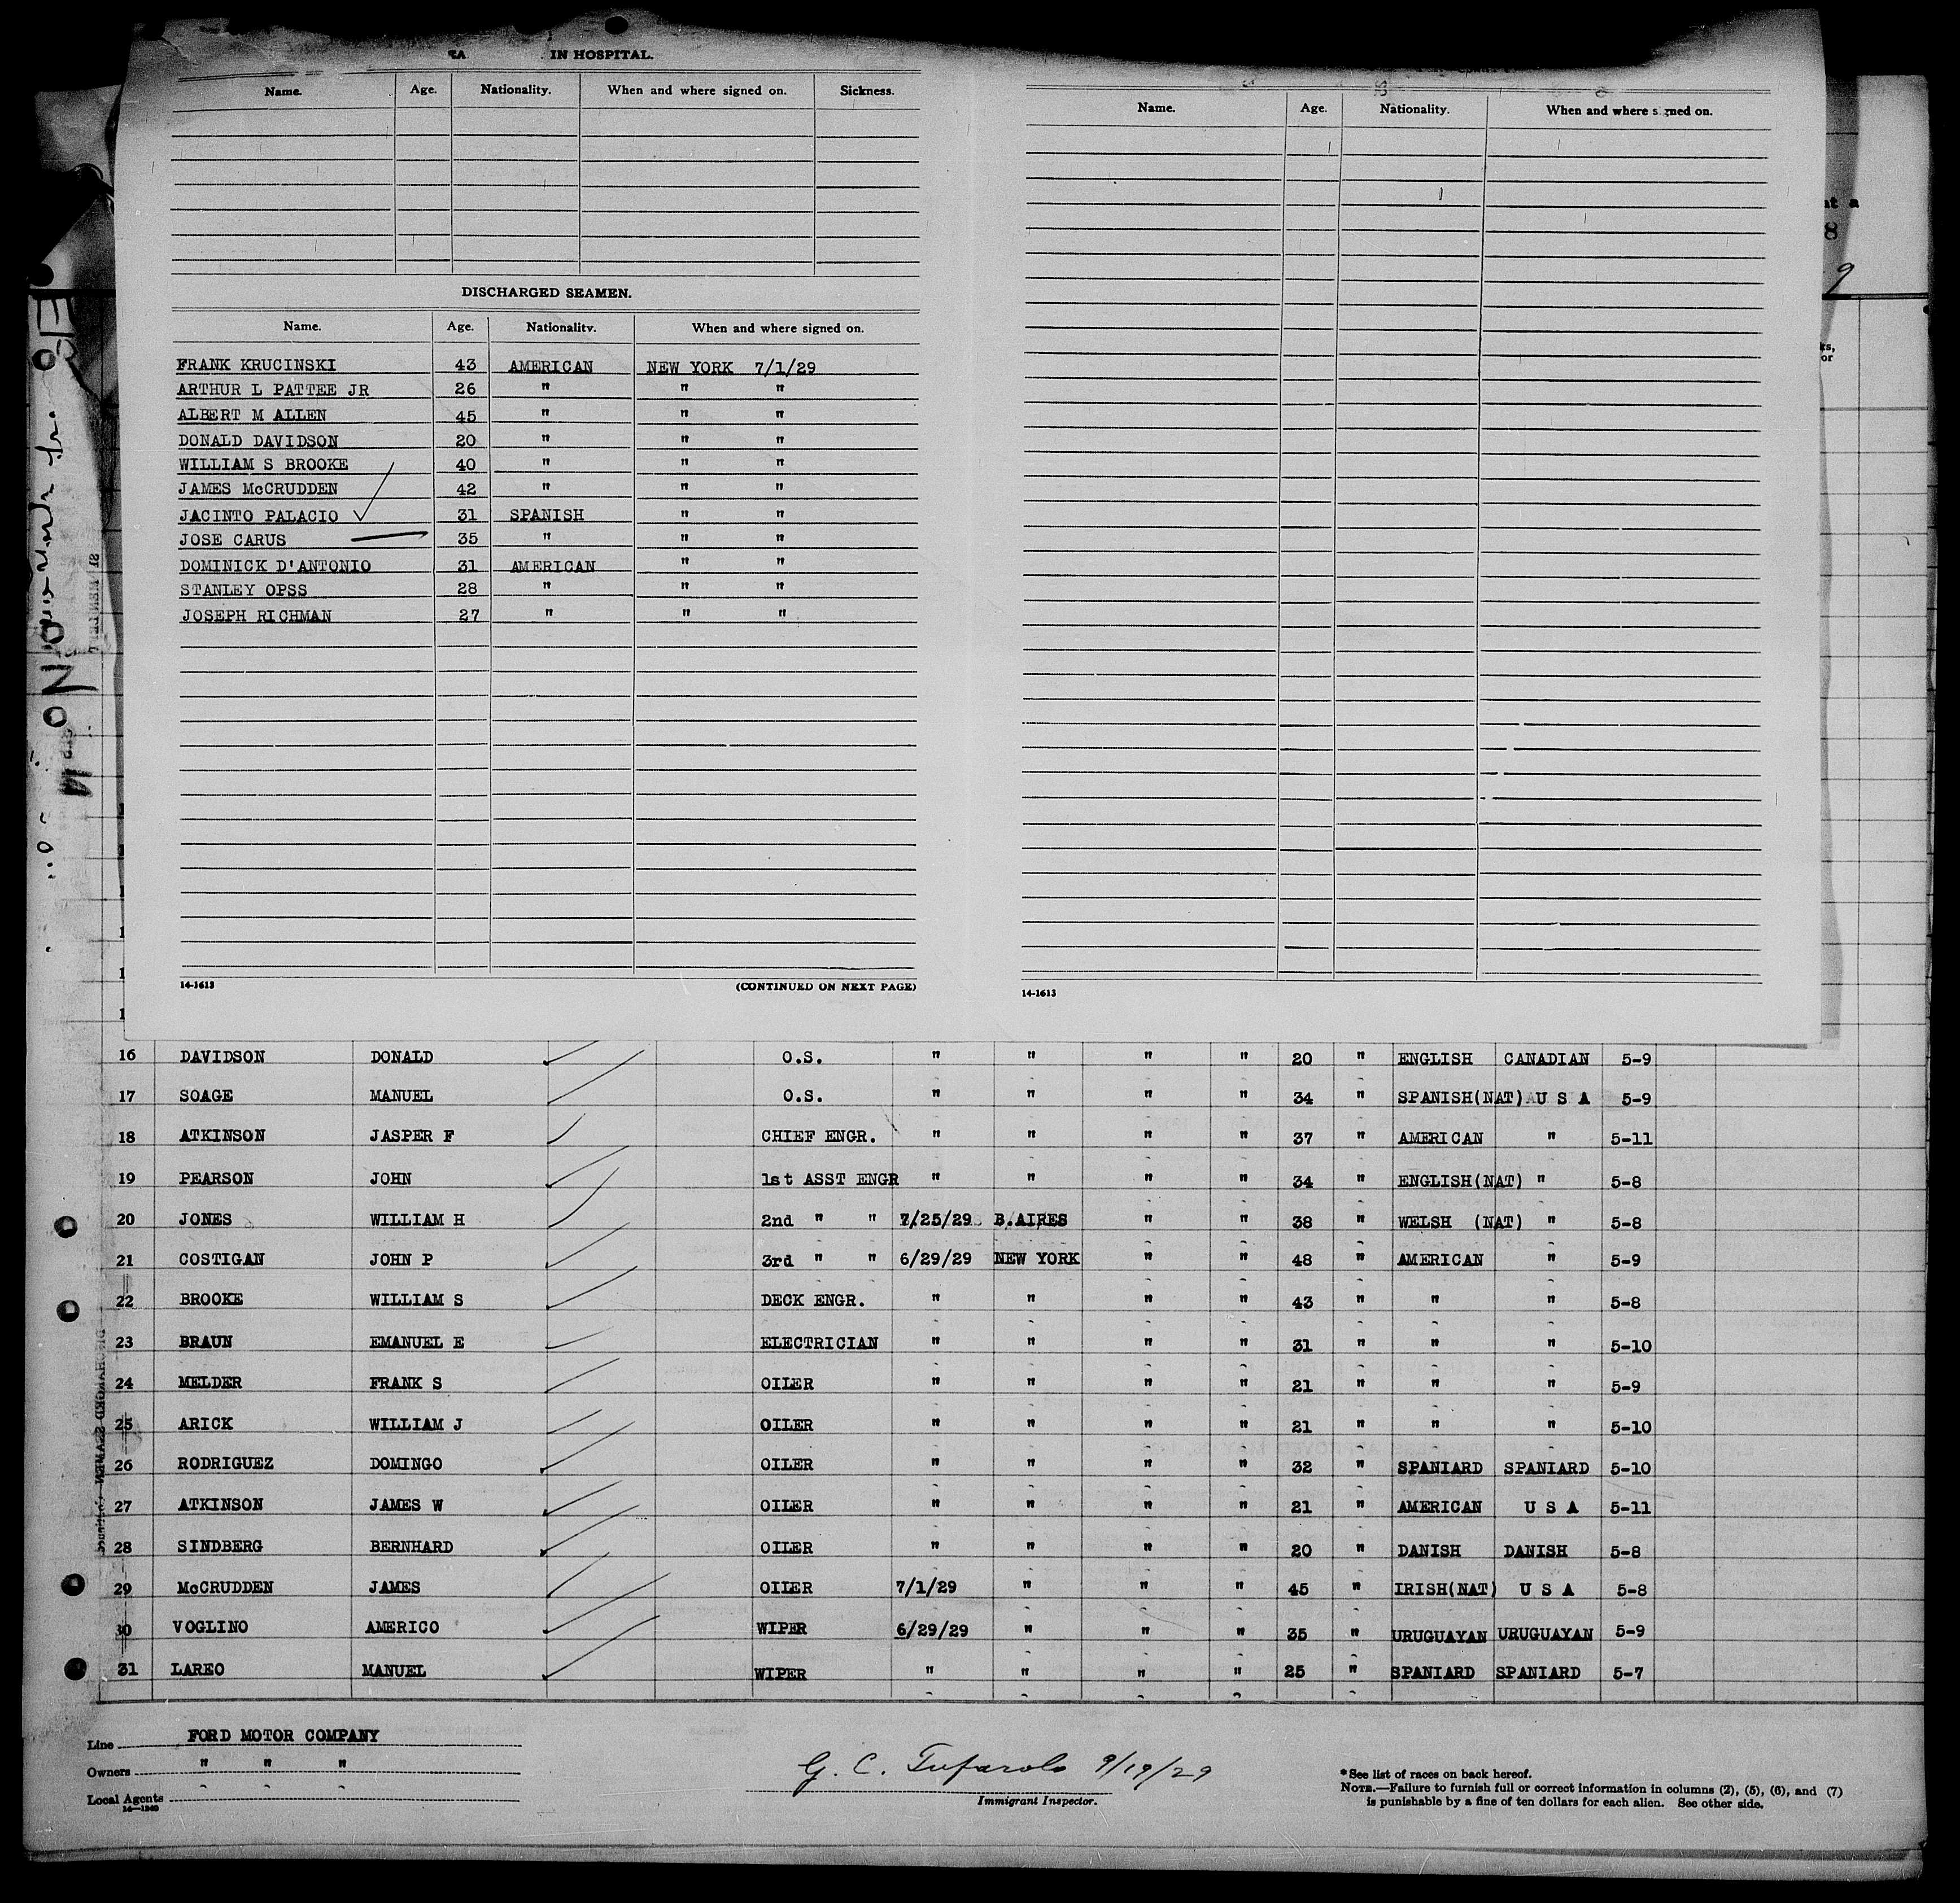 IN HOSPITAL.
Name. Age. Nationality. When and where signed on. Sickness.
Name. Age. Nationality. When and where signed on.
DISCHARGED SEAMEN.
Name. Age. Nationality. When and where signed on.
FRANK KRUCINSKI 43 AMERICAN NEW YORK 7/1/29
ARTHUR L PATTEE JR 26 " " "
ALBERT M ALLEN 45 " " "
DONALD DAVIDSON 20 " " "
WILLIAM S BROOKE 40 " " "
JAMES McCRUDDEN 42 " " "
JACINTO PALACIO 31 SPANISH " "
JOSE CARUS 35 " " "
DOMINICK D'ANTONIO 31 AMERICAN " "
STANLEY OPSS 28 " " "
JOSEPH RICHMAN 27 " " "
14-1613 (CONTINUED ON NEXT PAGE)
14-1613
16 DAVIDSON DONALD O.S. " " " " 20 " ENGLISH CANADIAN 5-9
17 SOAGE MANUEL O.S. " " " " 34 " SPANISH(NAT) U S A 5-9
18 ATKINSON JASPER F CHIEF ENGR. " " " " 37 " AMERICAN " 5-11
19 PEARSON JOHN 1st ASST ENGR " " " " 34 " ENGLISH(NAT) " 5-8
20 JONES WILLIAM H 2nd " " 7/25/29 B.AIRES " " 38 " WELSH (NAT) " 5-8
21 COSTIGAN JOHN P 3rd " " 6/29/29 NEW YORK " " 48 " AMERICAN " 5-9
22 BROOKE WILLIAM S DECK ENGR. " " " " 43 " " " 5-8
23 BRAUN EMANUEL E ELECTRICIAN " " " " 31 " " " 5-10
24 MELDER FRANK S OILER " " " " 21 " " " 5-9
25 ARICK WILLIAM J OILER " " " " 21 " " " 5-10
26 RODRIGUEZ DOMINGO OILER " " " " 32 " SPANIARD SPANIARD 5-10
27 ATKINSON JAMES W OILER " " " " 21 " AMERICAN U S A 5-11
28 SINDBERG BERNHARD OILER " " " " 20 " DANISH DANISH 5-8
29 McCRUDDEN JAMES OILER 7/1/29 " " " 45 " IRISH(NAT) U S A 5-8
30 VOGLINO AMERICO WIPER 6/29/29 " " " 35 " URUGUAYAN URUGUAYAN 5-9
31 LAREO MANUEL WIPER " " " " 25 " SPANIARD SPANIARD 5-7
Line FORD MOTOR COMPANY
Owners " " "
Local Agents
14-1240
G. C. Tufarolo 9/19/29
Immigrant Inspector.
*See list of races on back hereof.
NOTE.—Failure to furnish full or correct information in columns (2), (5), (6), and (7)
is punishable by a fine of ten dollars for each alien. See other side.